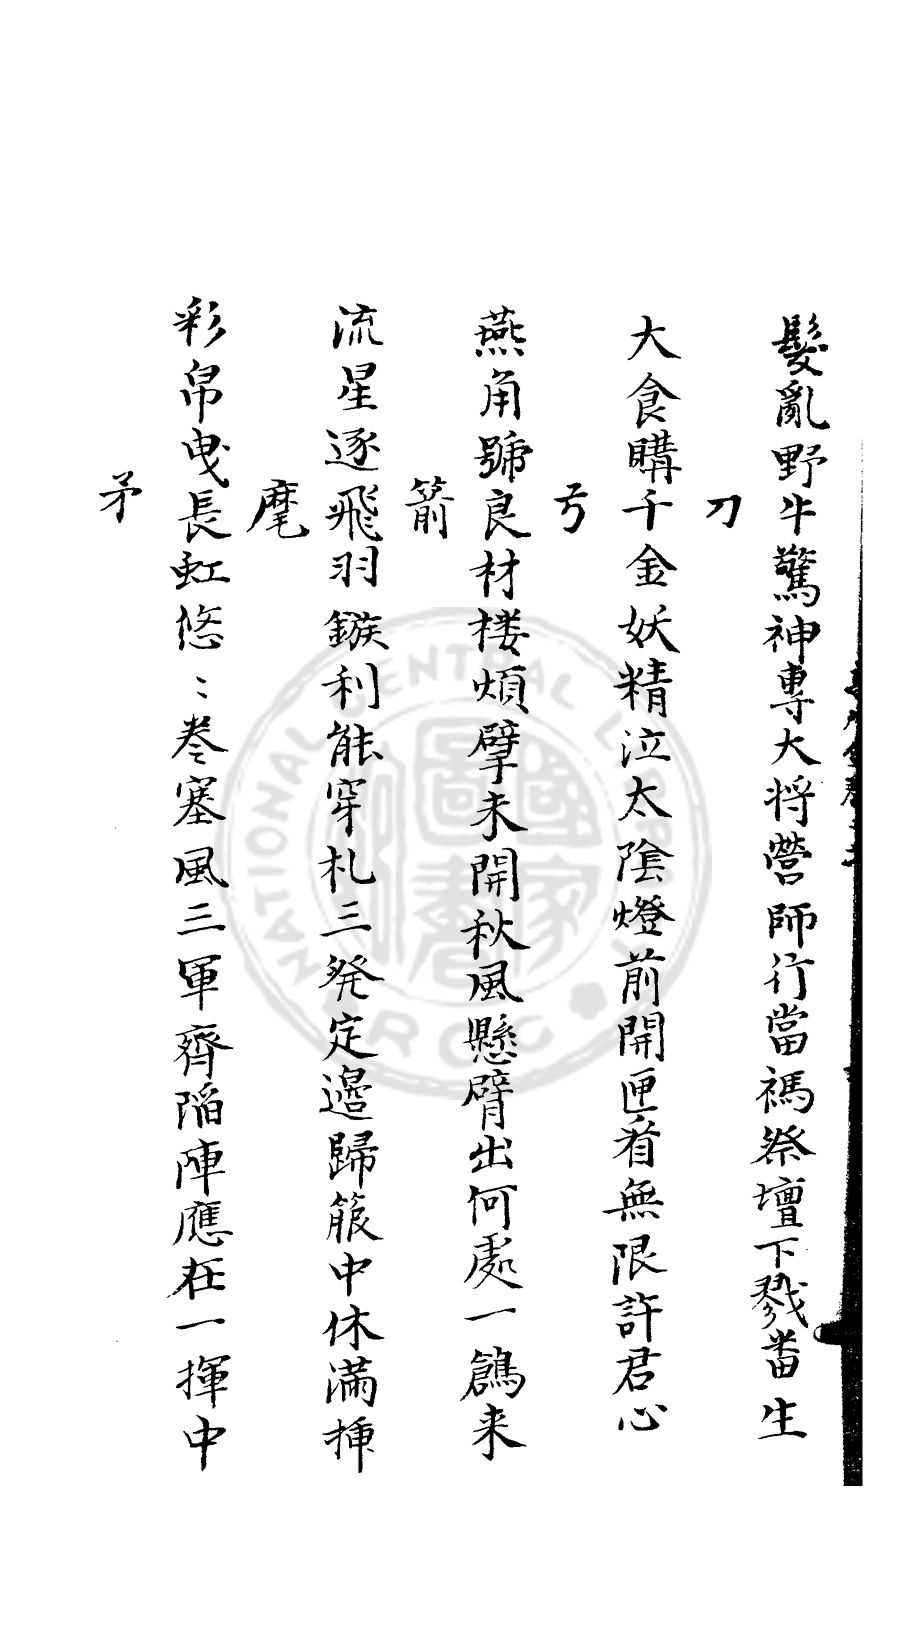 髮亂野牛驚神專大将營師行當禡祭壇下戮畨生
刀
大食購千金妖精泣太陰燈前開匣看無限許君心
弓
燕角號良材楼煩擘未開秋風懸臂出何處一鶬来
箭
流星逐飛羽鏃利能穿札三発定邉歸箙中休滿揷
麾
彩帛曳長虹悠〻卷塞風三軍齊陷陣應在一揮中
矛
NATIONAL CENTRAL LIBRARY R.O.C.
國家圖書